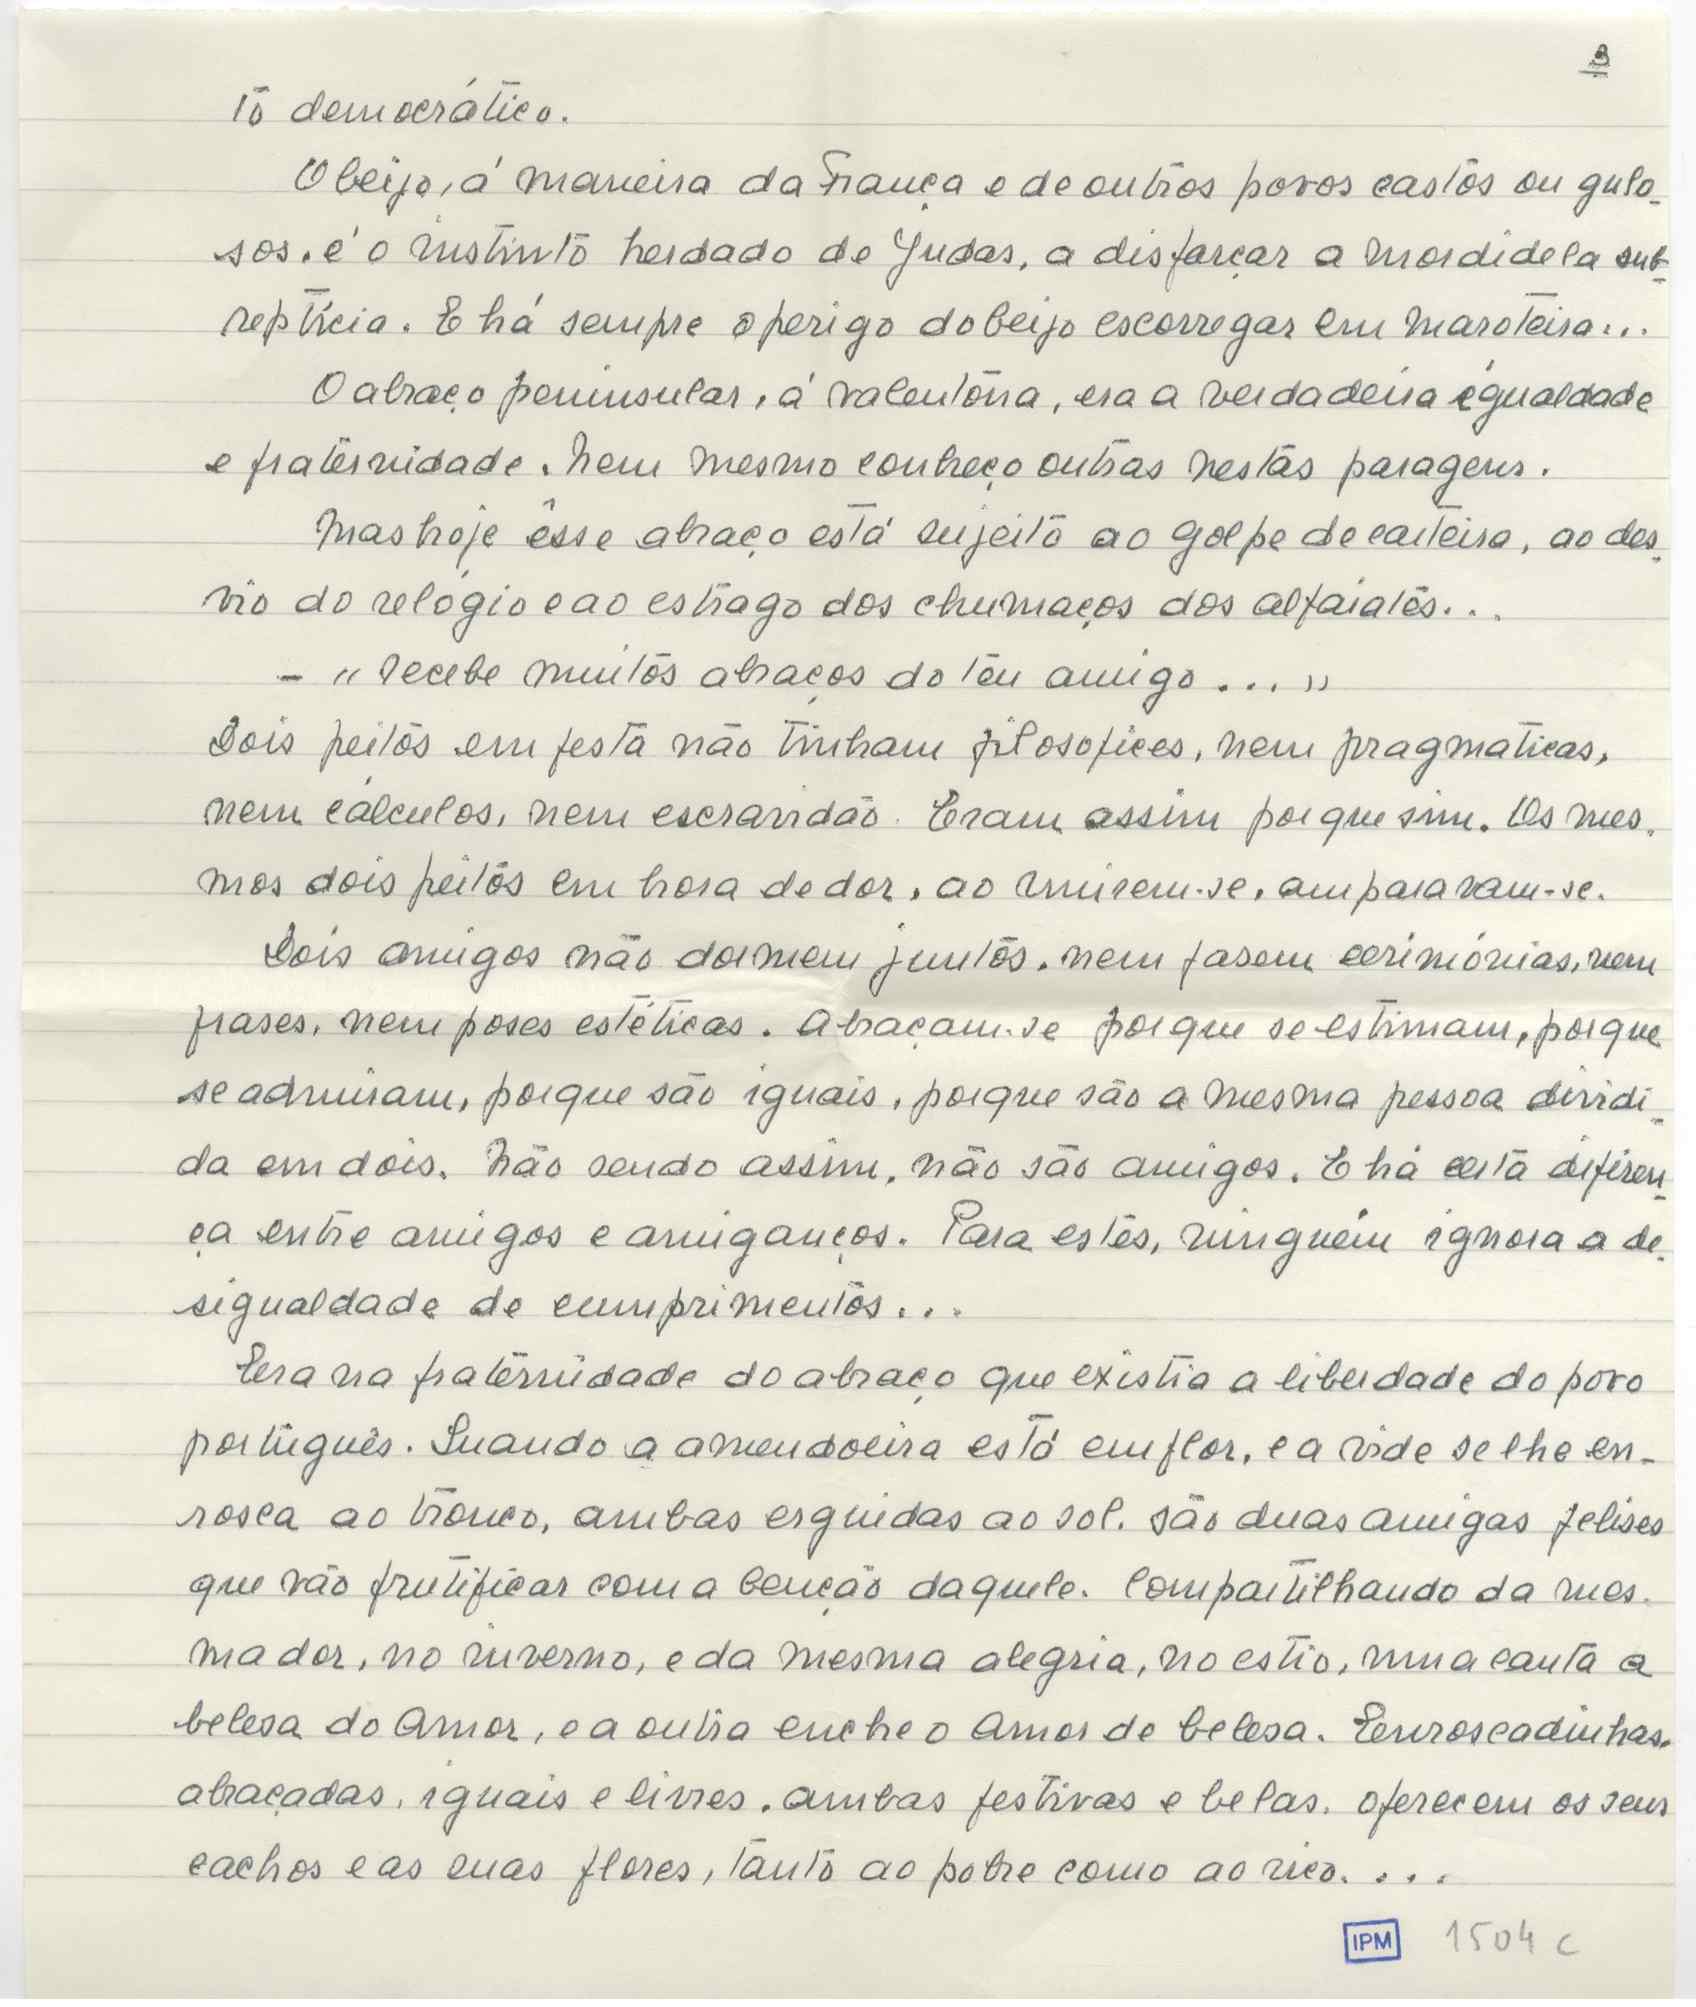 3
to democrático.
O beijo, á maneira da França e de outros povos castos ou gulo-
sos, é o instinto herdado de Judas, a disfarçar a mordidela sub-
reptícia. E há sempre o perigo do beijo escorregar em maroteira...
O abraço peninsular, á valentôna, era a verdadeira egualdade
e fraternidade. Nem mesmo conheço outras nestas paragens.
Mas hoje êsse abraço está sujeito ao golpe de carteira, ao des-
vio do relógio e ao estrago dos chumaços dos alfaiates...
- "recebe muitos abraços do teu amigo..."
Dois peitos em festa não tinham filosofices, nem pragmaticas,
nem cálculos, nem escravidão. Eram assim porque sim. Os mes-
mos dois peitos em hora de dor, ao unirem-se, amparavam-se.
Dois amigos não dormem juntos, nem fasem cerimónias, nem
frases, nem poses estéticas. Abraçam-se porque se estimam, porque
se admiram, porque são iguais, porque são a mesma pessoa dividi-
da em dois. Não sendo assim, não são amigos. E há certa diferen-
ça entre amigos e amiganços. Para estes, ninguém ignora a de-
sigualdade de cumprimentos...
Era na fraternidade do abraço que existia a liberdade do povo
português. Quando a amendoeira está em flor, e a vide se lhe en-
rosca ao tronco, ambas erguidas ao sol, são duas amigas felises
que vão frutificar com a benção daquele. Compartilhando da mes-
ma dor, no inverno, e da mesma alegria, no estio, uma canta a
belesa do Amor, e a outra enche o Amor de belesa. Enroscadinhas,
abraçadas, iguais e livres, ambas festivas e belas, oferecem os seus
cachos e as suas flores, tanto ao pobre como ao rico....
IPM 1504 c